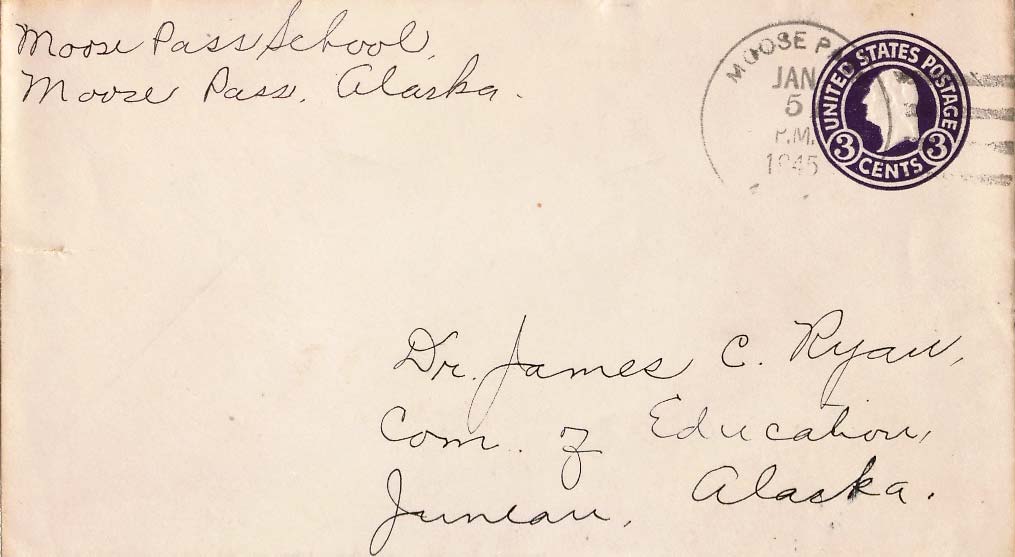 Moose Pass School,
Moose Pass, Alaska.
MOOSE PA
JAN
5
P.M.
1945
UNITED STATES POSTAGE
3 CENTS 3
Dr. James C. Ryan,
Com. of Education,
Juneau, Alaska.